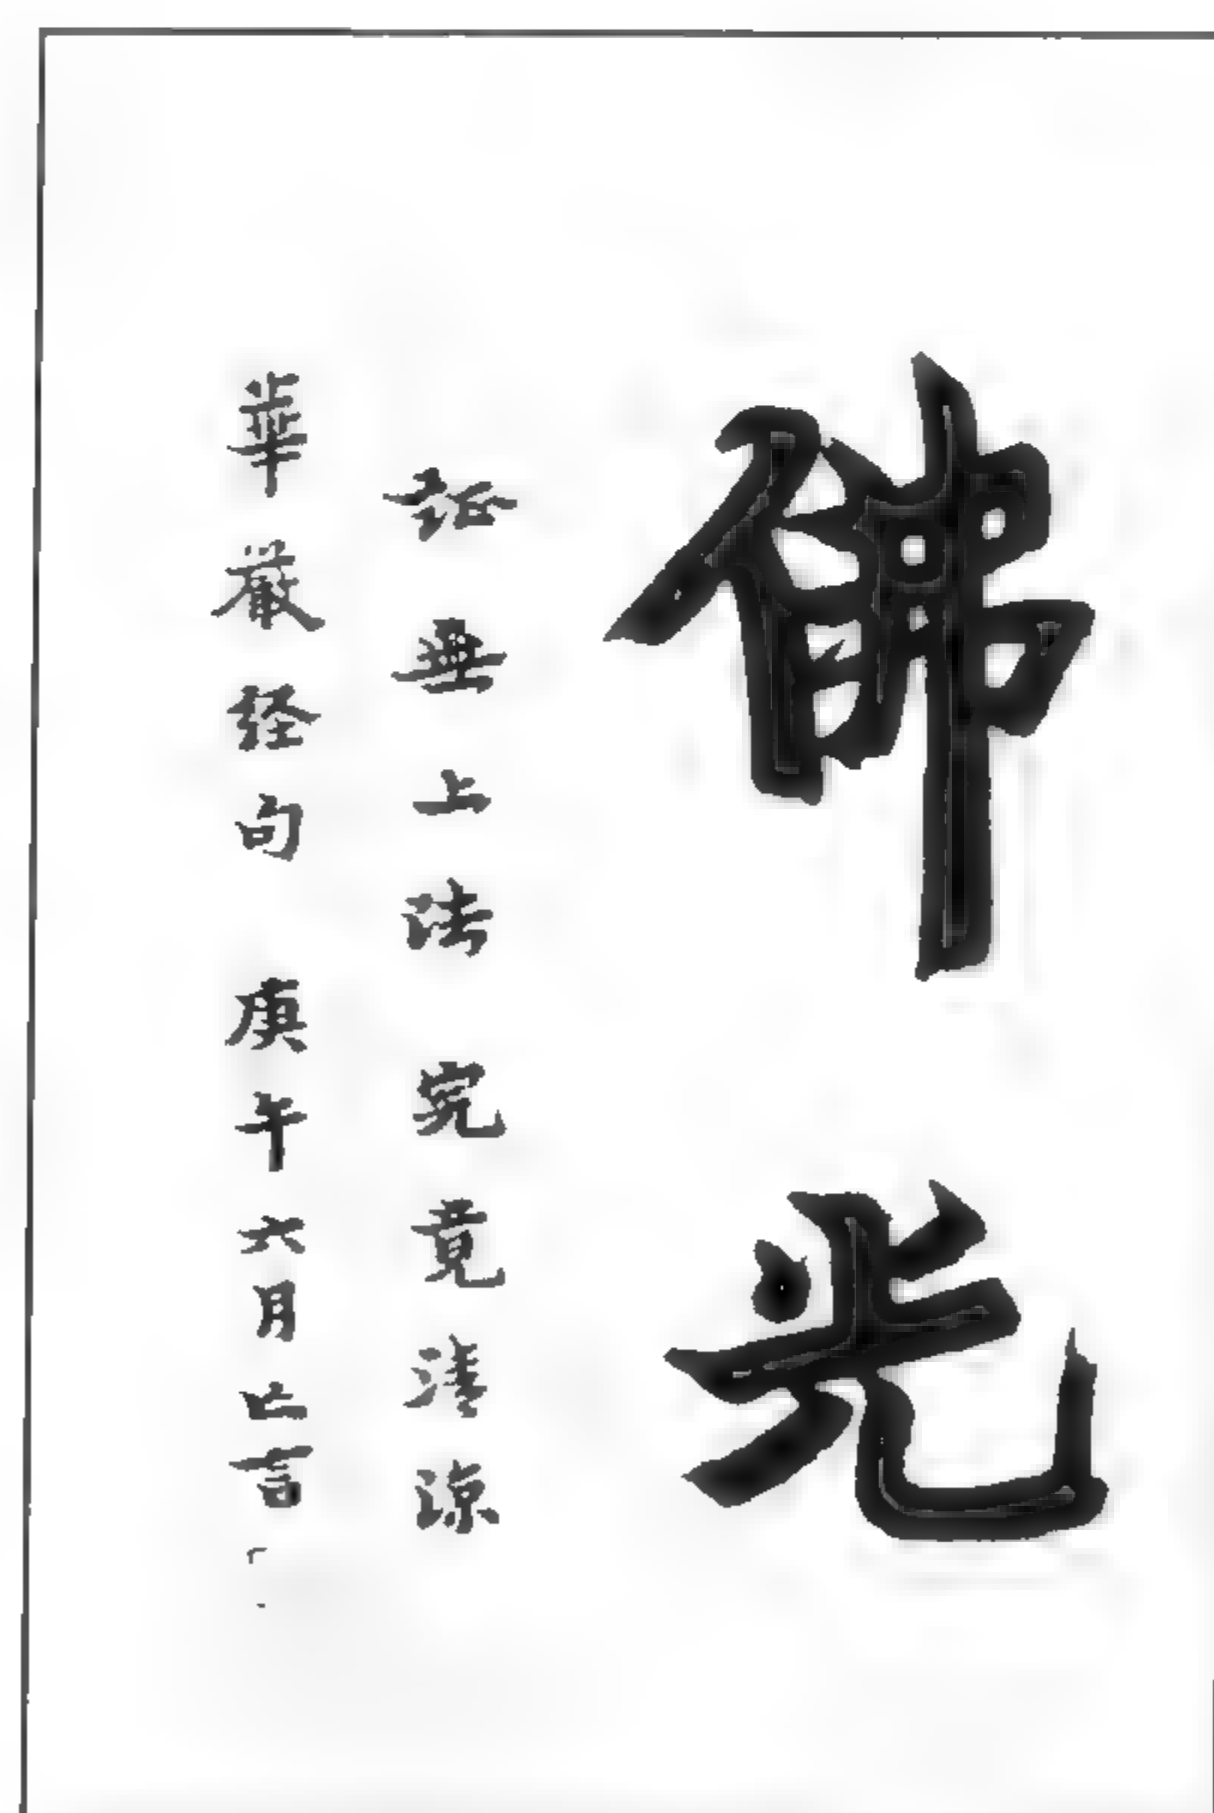 佛光
証無上法 究竟清涼
華嚴经句 庚午六月亡言